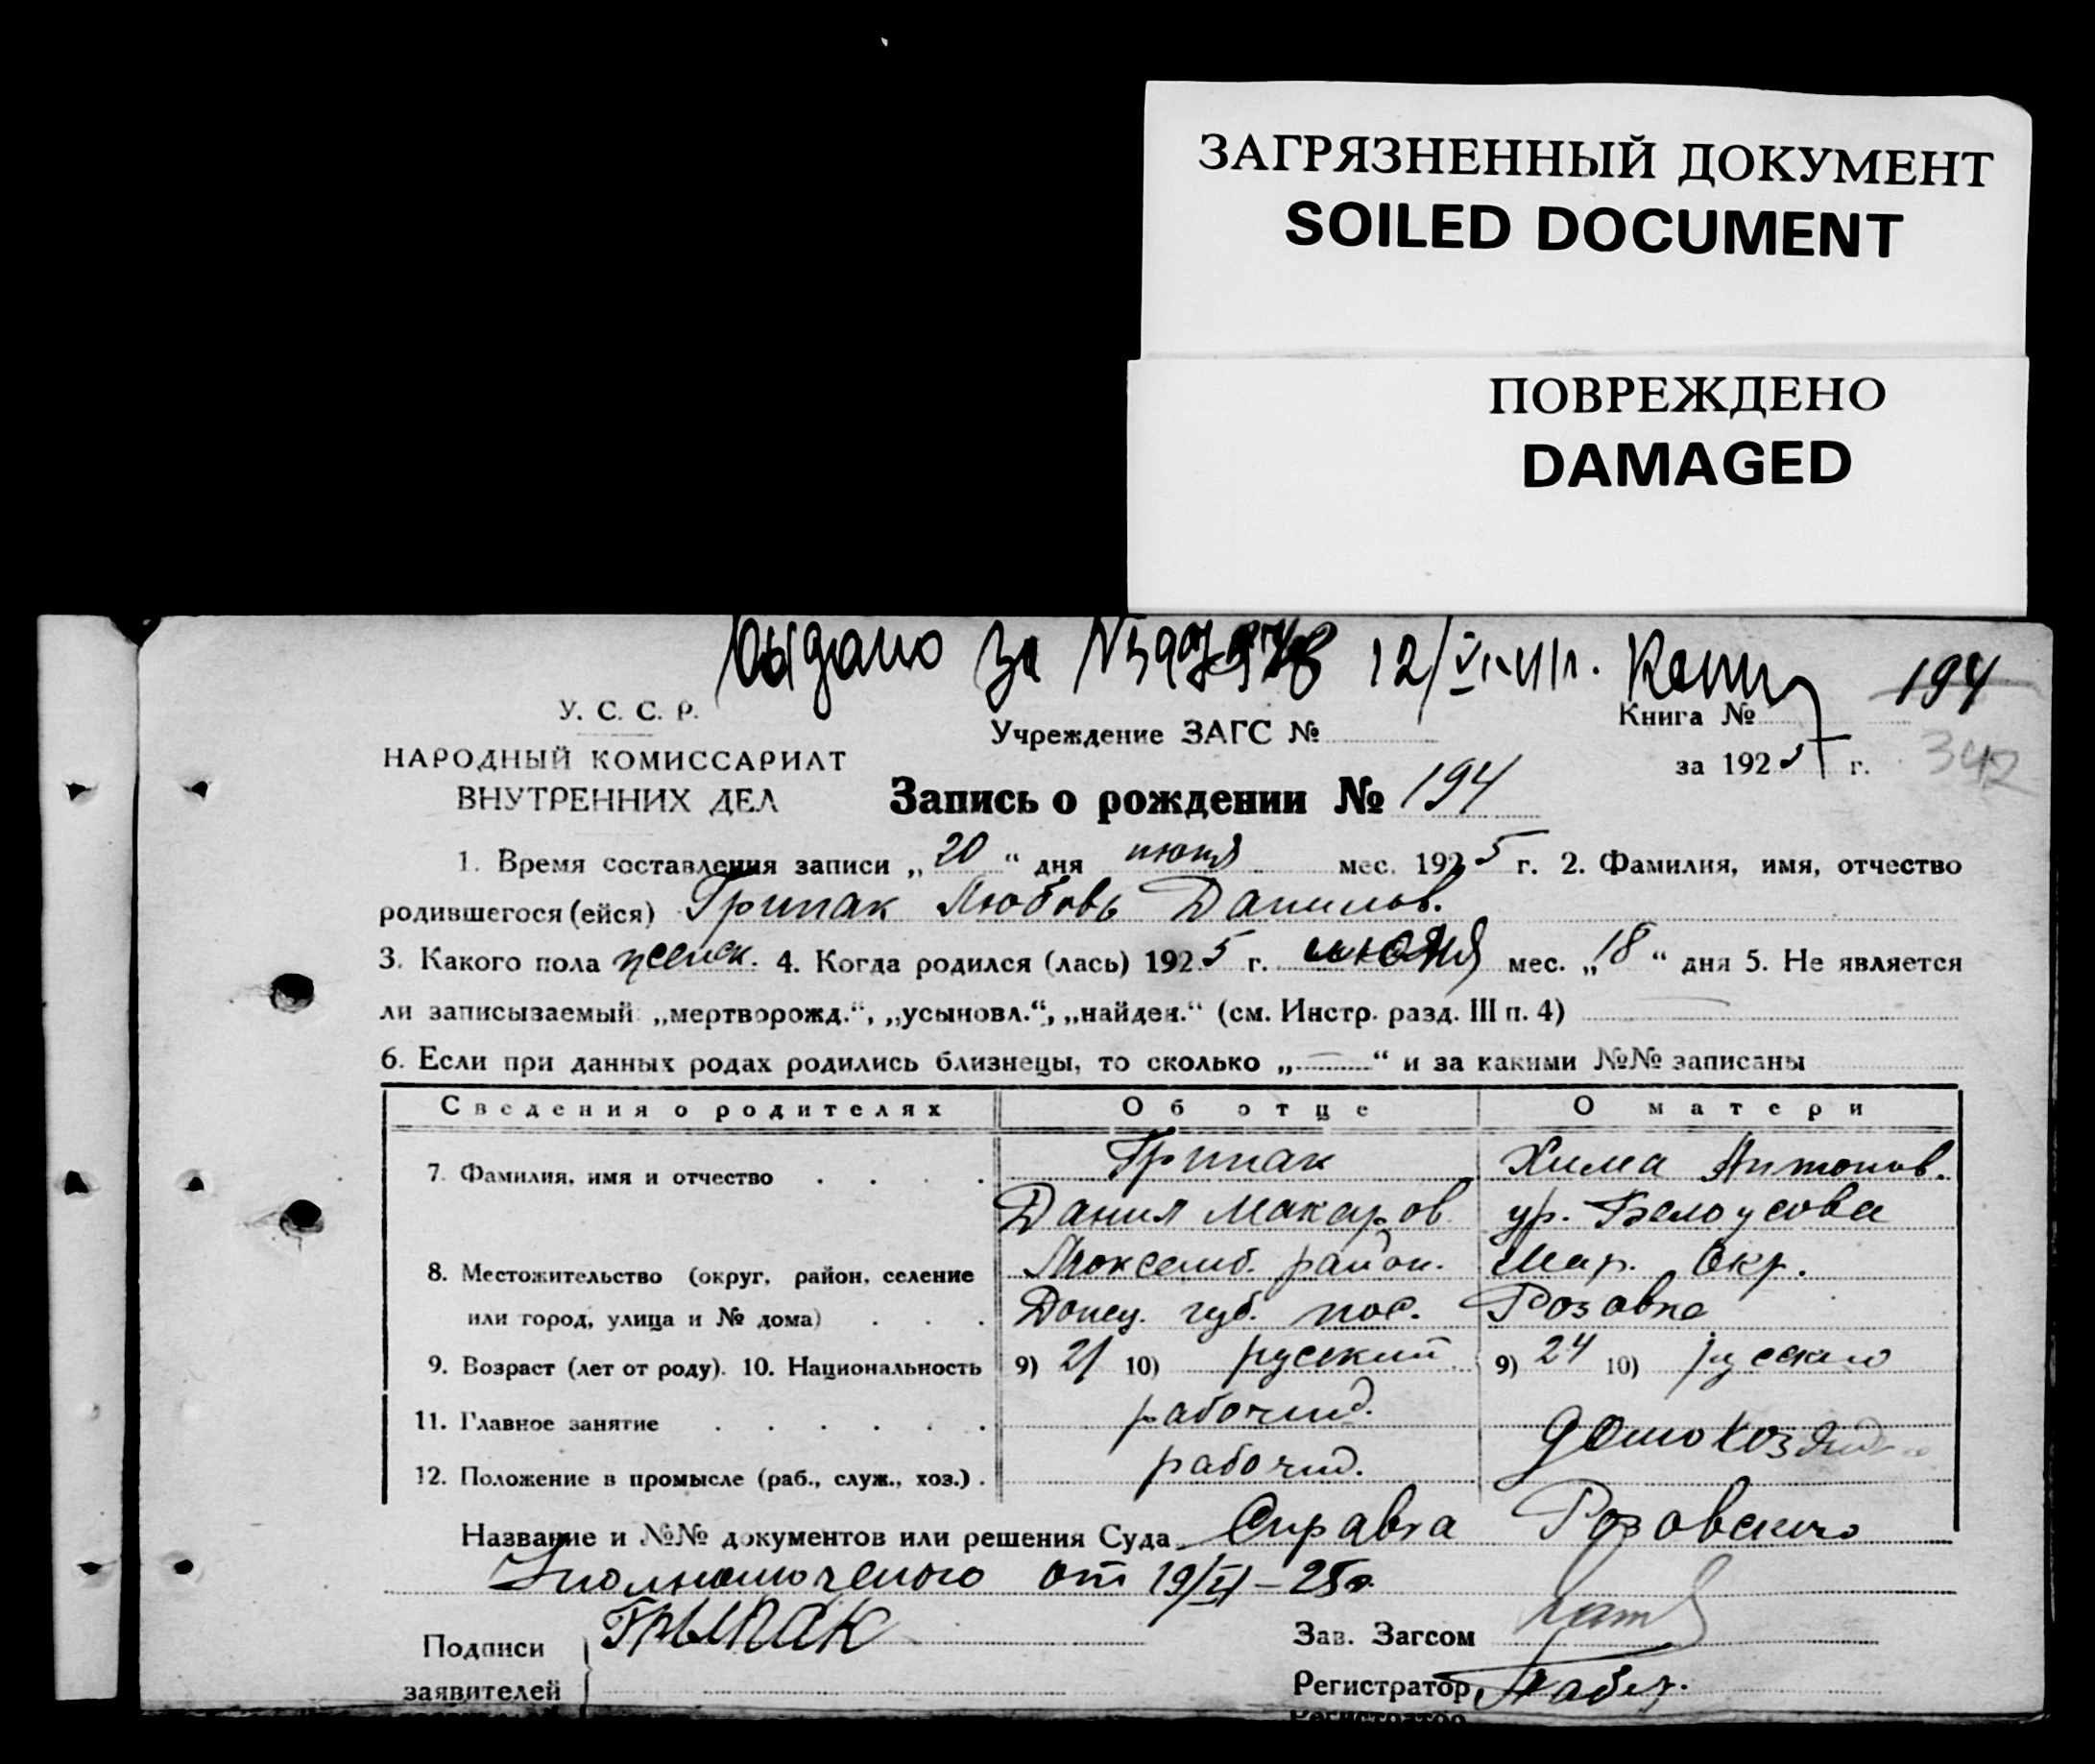 ЗАГРЯЗНЕННЫЙ ДОКУМЕНТ
SOILED DOCUMENT
ПОВРЕЖДЕНО
DAMAGED
Выдано за № 12/VI-41г.
194
У. С. С. Р.
Учреждение ЗАГС №
Книга №
НАРОДНЫЙ КОМИССАРИАТ
за 1925 г.
342
ВНУТРЕННИХ ДЕЛ
Запись о рождении № 194
1. Время составления записи „20“ дня июня мес. 1925 г. 2. Фамилия, имя, отчество
родившегося (ейся) Грипак Любовь Данилов.
3. Какого пола женск. 4. Когда родился (лась) 1925 г. июня мес. „18“ дня 5. Не является
ли записываемый „мертворожд.“, „усыновл.“, „найден.“ (см. Инстр. разд. III п. 4)
6. Если при данных родах родились близнецы, то сколько „—“ и за какими №№ записаны
Сведения о родителях Об отце О матери
7. Фамилия, имя и отчество Грипак Хима Антонов.
Данил Макаров ур. Белоусова
8. Местожительство (округ, район, селение Люксемб. район. Мар. Окр.
или город, улица и № дома) Донец. губ. пос. Розовка
9. Возраст (лет от роду). 10. Национальность 9) 21 10) русский 9) 24 10) русская
11. Главное занятие рабочий.
12. Положение в промысле (раб., служ., хоз.) рабочий.
Название и №№ документов или решения Суда Справка Розовского
Уполномоченого от 19/VI-25г.
Подписи Грыпак Зав. Загсом
заявителей Регистратор